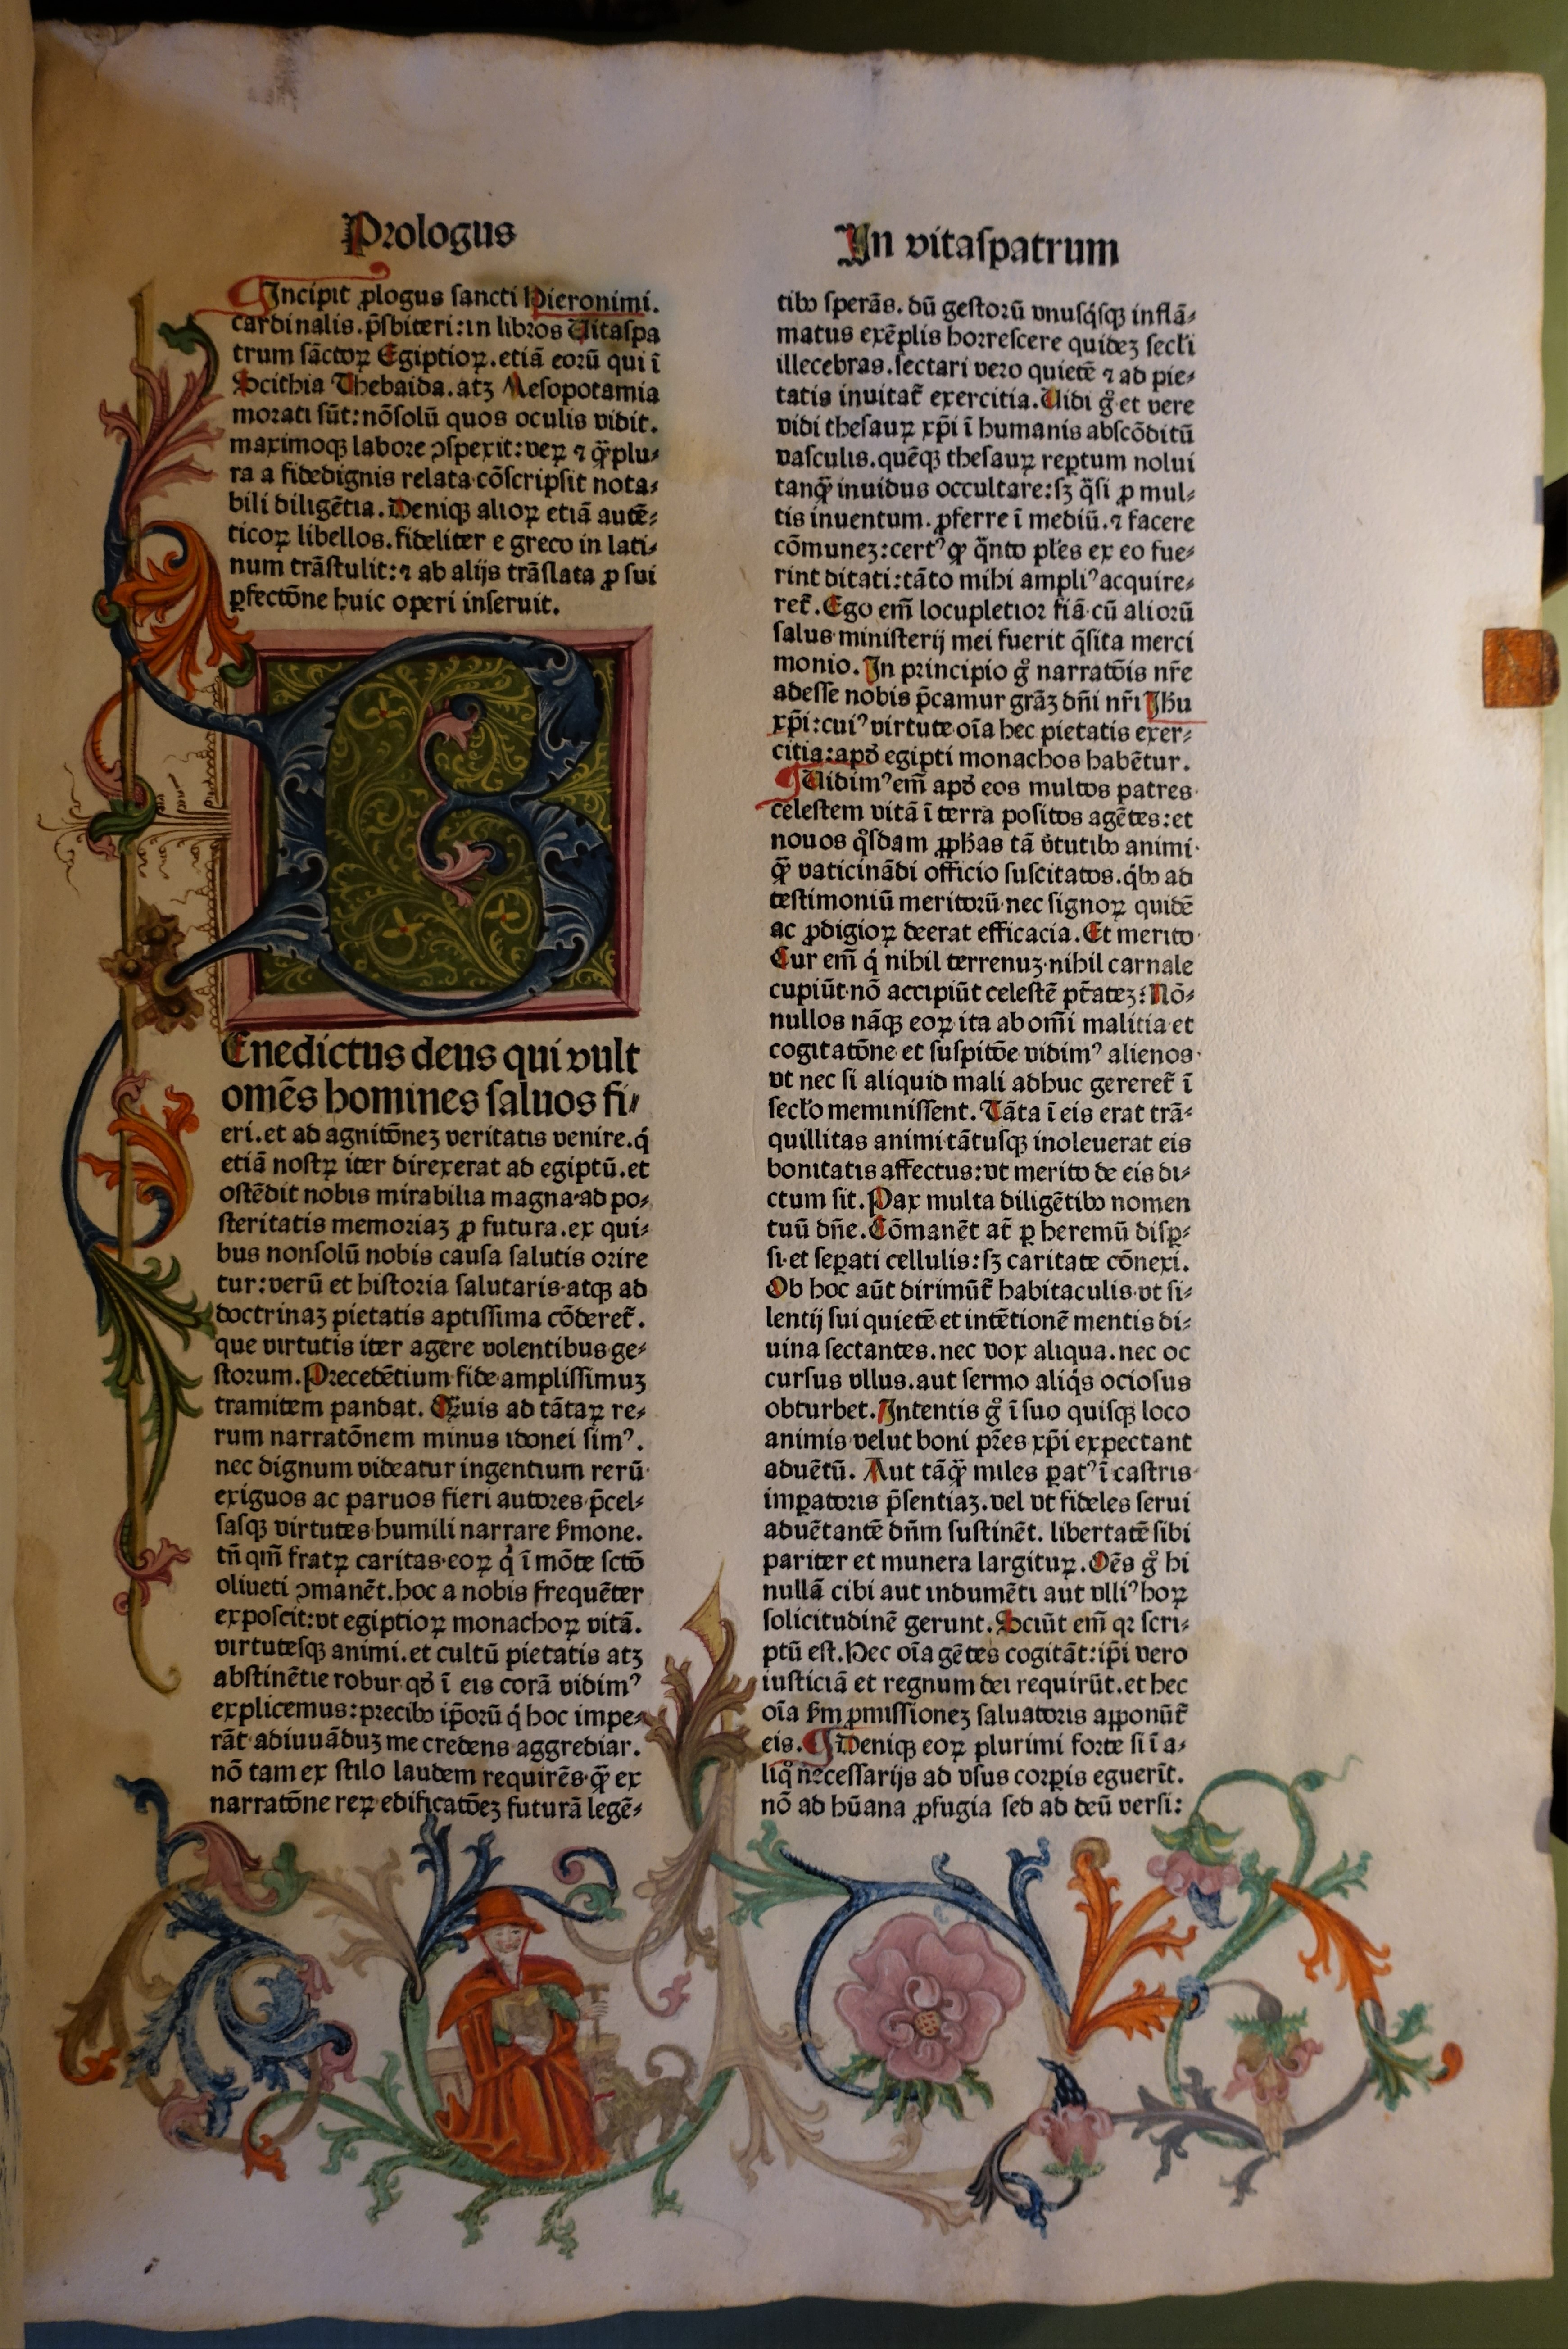 Prologus
Incipit ꝓlogus sancti Hieronimi.
cardinalis. p̄sbiteri: in libros Uitaspa
trum sāctoꝝ Egiptioꝝ. etiā eorū qui ī
Scithia Thebaida. atꝫ Mesopotamia
morati sūt: nōsolū quos oculis vidit.
maximoqꝫ labore ꝯspexit: veꝝ ⁊ qꝫ̄ plu⸗
ra a fidedignis relata cōscripsit nota⸗
bili diligētia. Deniqꝫ alioꝝ etiā autē⸗
ticoꝝ libellos. fideliter e greco in lati⸗
num trāstulit: ⁊ ab alijs trāslata ꝓ sui
ꝑfectōne huic operi inseruit.
BEnedictus deus qui vult
omēs homines saluos fi⸗
eri. et ad agnitōneꝫ veritatis venire. q́
etiā nostꝝ iter direxerat ad egiptū. et
ostēdit nobis mirabilia magna·ad po⸗
steritatis memoriaꝫ ꝓ futura. ex qui⸗
bus nonsolū nobis causa salutis orire
tur: verū et historia salutaris·atqꝫ ad
doctrinaꝫ pietatis aptissima cōderet᷑.
que virtutis iter agere volentibus ge⸗
storum. Precedētium fide amplissimuꝫ
tramitem pandat. Quis ad tātaꝝ re⸗
rum narratōnem minus idonei simꝰ.
nec dignum videatur ingentium rerū·
exiguos ac paruos fieri autores·p̄cel⸗
sasqꝫ virtutes humili narrare s̄mone.
tn̄ qm̄ fratꝝ caritas·eoꝝ q́ ī mōte sctō
oliueti ꝯmanēt. hoc a nobis frequēter
exposcit: vt egiptioꝝ monachoꝝ vitā.
virtutesqꝫ animi. et cultū pietatis atꝫ
abstinētie robur·qd̓ ī eis corā vidimꝰ
explicemus: precibꝫ ip̄orū q́ hoc impe⸗
rāt·adiuuāduꝫ me credens aggrediar.
nō tam ex stilo laudem requirēs·qꝫ̄ ex
narratōne reꝝ edificatōeꝫ futurā legē⸗
In vitaspatrum
tibꝫ sperās. dū gestorū vnusq́sqꝫ inflā⸗
matus exēplis horrescere quideꝫ secl̓i
illecebras. sectari vero quietē ⁊ ad pie⸗
tatis inuitat᷑ exercitia. Uidi g̊ et vere
vidi thesauꝝ xp̄i ī humanis abscōditū
vasculis. quēqꝫ thesauꝝ reꝑtum nolui
tanqꝫ̄ inuidus occultare: sꝫ q̄si ꝓ mul⸗
tis inuentum. ꝓferre ī mediū. ⁊ facere
cōmuneꝫ: certꝰ qꝫ q̄nto pl̓es ex eo fue⸗
rint ditati: tāto mihi ampliꝰ acquire⸗
ret᷑. Ego em̄ locupletior fiā·cū aliorū
salus·ministerij mei fuerit q̄sita merci
monio. In principio g̊ narratōis nr̄e
adesse nobis p̄camur grāꝫ dn̄i nr̄i Jhu
xp̄i: cuiꝰ virtute oīa hec pietatis exer⸗
citia: apd̓ egipti monachos habētur.
Uidimꝰ em̄ apd̓ eos multos patres·
celestem vitā ī terra positos agētes: et
nouos q̊sdam ꝓph̄as tā v̓tutibꝫ animi·
qꝫ̄ vaticinādi officio suscitatos. q́bꝫ ad
testimoniū meritorū·nec signoꝝ quidē
ac ꝓdigioꝝ deerat efficacia. Et merito·
Cur em̄ q́ nihil terrenuꝫ·nihil carnale
cupiūt·nō accipiūt celestē pt̄ateꝫ: Nō⸗
nullos nāqꝫ eoꝝ ita ab om̄i malitia et
cogitatōne et suspitōe vidimꝰ alienos·
vt nec si aliquid mali adhuc gereret᷑ ī
secl̓o meminissent. Tāta ī eis erat trā⸗
quillitas animi tātusqꝫ inoleuerat eis
bonitatis affectus: vt merito de eis di⸗
ctum sit. Pax multa diligētibꝫ nomen
tuū dn̄e. Cōmanēt at᷑ ꝑ heremū disꝑ⸗
si·et seꝑati cellulis: sꝫ caritate cōnexi.
Ob hoc aūt dirimūt᷑ habitaculis·vt si⸗
lentij sui quietē·et intētionē mentis di⸗
uina sectantes. nec vox aliqua. nec oc
cursus vllus. aut sermo aliq́s ociosus
obturbet. Intentis g̊ ī suo quisqꝫ loco
animis velut boni pr̄es xp̄i expectant
aduētū. Aut tāqꝫ̄ miles ꝑatꝰ ī castris·
imꝑatoris p̄sentiaꝫ. vel vt fideles serui
aduētantē dn̄m sustinēt. libertatē sibi
pariter et munera largituꝝ. Oēs g̊ hi
nullā cibi aut indumēti aut vlliꝰ hoꝝ
solicitudinē gerunt. Sciūt em̄ qꝛ scri⸗
ptū est. Hec oīa gētes cogitāt: ip̄i vero
iusticiā et regnum dei requirūt. et hec
oīa s̄m ꝓmissioneꝫ saluatoris apponūt᷑
eis. Deniqꝫ eoꝝ plurimi forte si ī a⸗
liq̊ necessarijs ad vsus corꝑis eguerīt.
nō ad hūana ꝓfugia sed ad deū versi: